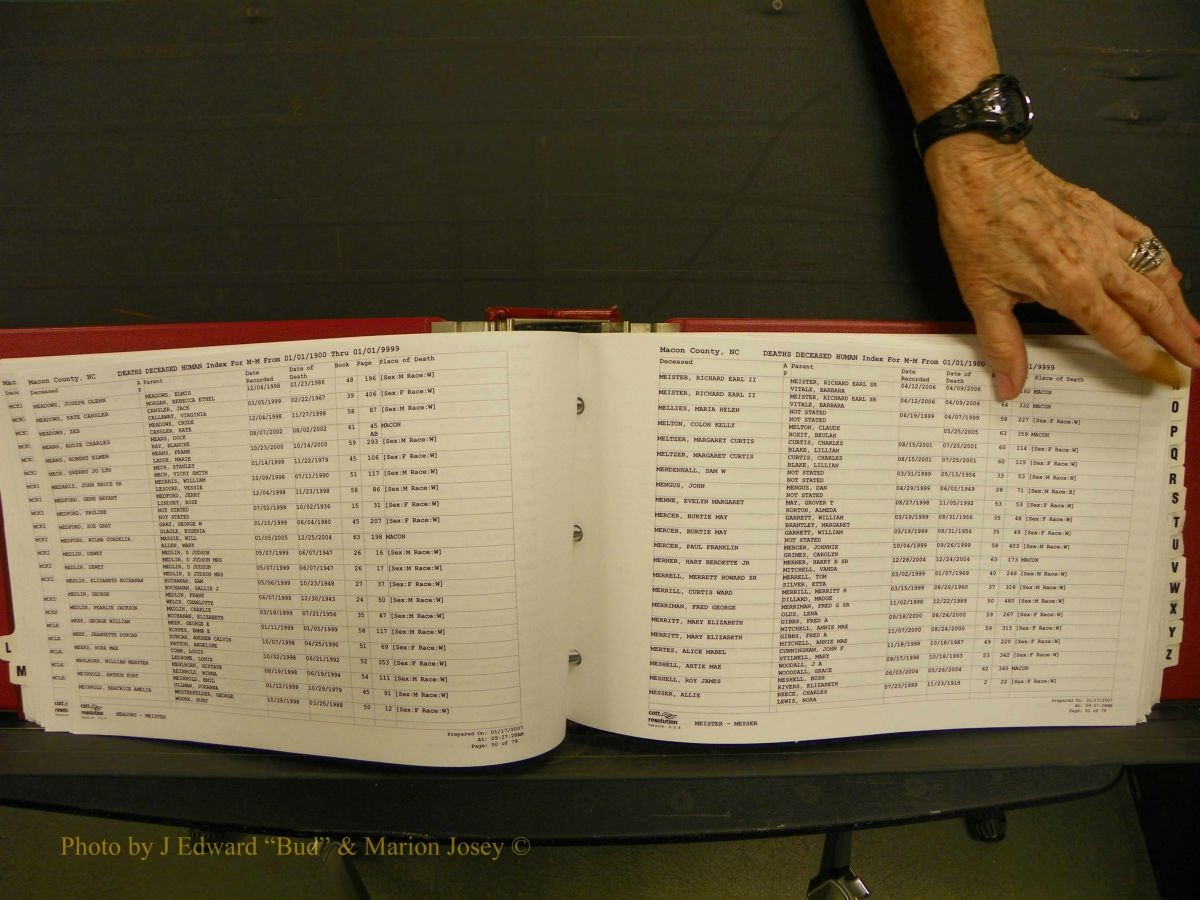 Mac
Dece
MCKI
MCKI
MCKI
MCKI
MCLE
MCLE
L
M
Macon County, NC DEATHS DECEASED HUMAN Index For M-M From 01/01/1900 Thru 01/01/9999
Deceased A Parent Date Recorded Date of Death Book Page Place of Death
P
MEADOWS, JOSEPH GLENN MEADOWS, ELMIS 12/04/1998 01/23/1986 48 196 [Sex:M Race:W]
MORGAN, REBECCA ETHEL
MEADOWS, KATE CANSLER CANSLER, JACK 03/05/1999 02/22/1967 39 406 [Sex:F Race:W]
CALLAWAY, VIRGINIA
MEADOWS, ZEB MEADOWS, CRUDE 12/04/1998 11/27/1998 58 87 [Sex:M Race:W]
CANSLER, KATE
MEANS, ADDIE CHARLES MEANS, DOCK 08/07/2002 08/02/2002 61 45 MACON
RAY, BLANCHE AB
MEANS, ROBERT ELMER MEANS, FRANK 10/23/2000 10/14/2000 59 293 [Sex:M Race:W]
LADUE, MARIE
MECH, SHERRY JO LYN MECH, STANLEY 01/14/1999 11/22/1979 45 106 [Sex:F Race:W]
MECH, VICKY SMITH
MEDARIS, JOHN BRUCE SR MEDARIS, WILLIAM 10/09/1998 07/11/1990 51 117 [Sex:M Race:W]
LESOURD, VESSIE
MEDFORD, GENE BRYANT MEDFORD, JERRY 12/04/1998 11/23/1998 58 86 [Sex:M Race:W]
LINDSEY, ROSE
MEDFORD, PAULINE NOT STATED 07/02/1999 10/02/1936 15 31 [Sex:F Race:W]
NOT STATED
MEDFORD, SUE GRAY GRAY, GEORGE W 01/15/1999 06/04/1980 45 207 [Sex:F Race:W]
SLAGLE, EUGENIA
MEDFORD, WILMA CORDELIA MASSIE, WILL 01/05/2005 12/25/2004 63 198 MACON
ALLEN, MARY
MEDLIN, DEWEY MEDLIN, D JUDSON 05/07/1999 06/07/1947 26 16 [Sex:M Race:W]
MEDLIN, D JUDSON MRS
MEDLIN, DEWEY MEDLIN, D JUDSON 05/07/1999 06/07/1947 26 17 [Sex:M Race:W]
MEDLIN, D JUDSON MRS
MEDLIN, ELIZABETH BUCHANAN BUCHANAN, SAM 05/06/1999 10/23/1948 27 37 [Sex:F Race:W]
BUCHANAN, SALLIE J
MEDLIN, GEORGE MEDLIN, FRANK 06/07/1999 12/30/1943 24 50 [Sex:M Race:W]
WELCH, CHARLOTTE
MEDLIN, PEARLIE JACKSON MEDLIN, CHARLIE 03/19/1999 07/21/1956 35 47 [Sex:M Race:W]
BUCHANAN, ELIZABETH
MEEK, GEORGE WILLIAM MEEK, GEORGE E 01/11/1999 01/05/1999 58 117 [Sex:M Race:W]
HOPPES, EMMA E
MEEKS, JEANNETTE DUNCAN DUNCAN, ANDREW CALVIN 10/07/1998 04/25/1990 51 69 [Sex:F Race:W]
PATTON, ANGELINE
MEEKS, NORA MAE COBB, LOUIS 10/02/1998 06/21/1992 52 353 [Sex:F Race:W]
LEDSOME, LONIE
MEHLHORN, WILLIAM WEBSTER MEHLHORN, GUSTAVE 08/19/1998 06/19/1994 54 111 [Sex:M Race:W]
REINHOLD, MINNA
MEINHOLD, ARTHUR KURT MEINHOLD, EMIL 01/12/1999 10/29/1979 45 91 [Sex:M Race:W]
ULLMAN, JOHANNA
MEINHOLD, BEATRICE AMELIA WESTERFELDER, GEORGE 10/28/1998 03/25/1988 50 12 [Sex:F Race:W]
MOORE, RUBY
cott
resolution
MEADOWS - MEISTER
Prepared On: 01/17/2007
At: 09:27:28AM
Page: 50 of 79
Macon County, NC DEATHS DECEASED HUMAN Index For M-M From 01/01/1900 /9999
Deceased A Parent Date Recorded Date of Place of Death
P
MEISTER, RICHARD EARL II MEISTER, RICHARD EARL SR 04/12/2006 04/09/2006 192 MACON
VITALE, BARBARA
MEISTER, RICHARD EARL II MEISTER, RICHARD EARL SR 04/12/2006 04/09/2006 64 332 MACON
VITALE, BARBARA
MELLIES, MARIA HELEN NOT STATED 04/19/1999 04/07/1999 58 227 [Sex:F Race:W]
NOT STATED
MELTON, COLON KELLY MELTON, CLAUDE 05/25/2005 63 359 MACON
HOXIT, BEULAH
MELTZER, MARGARET CURTIS CURTIS, CHARLES 08/15/2001 07/25/2001 60 114 [Sex:F Race:W]
BLAKE, LILLIAN
MELTZER, MARGARET CURTIS CURTIS, CHARLES 08/15/2001 07/25/2001 60 115 [Sex:F Race:W]
BLAKE, LILLIAN
MENDENHALL, SAM W NOT STATED 03/31/1999 05/13/1954 33 53 [Sex:M Race:W]
NOT STATED
MENGUS, JOHN MENGUS, DAN 04/29/1999 06/02/1949 28 71 [Sex:M Race:B]
NOT STATED
MENNE, EVELYN MARGARET MAY, GROVER T 08/27/1998 11/05/1992 53 53 [Sex:F Race:W]
HORTON, ALMEDA
MERCER, BURTIE MAY GARRETT, WILLIAM 03/19/1999 08/31/1956 35 48 [Sex:F Race:W]
BRANTLEY, MARGARET
MERCER, BURTIE MAY GARRETT, WILLIAM 03/19/1999 08/31/1956 35 49 [Sex:F Race:W]
NOT STATED
MERCER, PAUL FRANKLIN MERCER, JOHNNIE 10/04/1999 09/26/1999 58 403 [Sex:M Race:W]
GRIMES, CAROLYN
MERNER, HARY BERDETTE JR MERNER, HARRY B SR 12/28/2004 12/24/2004 63 173 MACON
MITCHELL, VANDA
MERRELL, MERRETT HOWARD SR MERRELL, TOM 03/02/1999 01/07/1969 40 246 [Sex:M Race:W]
SILVER, ETTA
MERRILL, CURTIS WARD MERRILL, MERRITT H 03/15/1999 08/20/1960 37 316 [Sex:M Race:W]
DILLARD, MADGE
MERRIMAN, FRED GEORGE MERRIMAN, FRED G SR 11/02/1998 12/22/1989 50 480 [Sex:M Race:W]
OLDS, LENA
MERRITT, MARY ELIZABETH GIBBS, FRED A 09/18/2000 08/24/2000 59 267 [Sex:F Race:W]
MITCHELL, ANNIE MAE
MERRITT, MARY ELIZABETH GIBBS, FRED A 11/07/2000 08/24/2000 59 315 [Sex:F Race:W]
MITCHELL, ANNIE MAE
MERTES, ALICE MABEL CUNNINGHAM, JOHN F 11/18/1998 10/16/1987 49 220 [Sex:F Race:W]
STILWELL, MARY
MESHELL, ARTIE MAE WOODALL, J A 09/17/1998 10/18/1993 53 342 [Sex:F Race:W]
WOODALL, GRACE
MESHELL, ROY JAMES MESHELL, BUSH 06/03/2004 05/26/2004 62 340 MACON
RIVERS, ELIZABETH
MESSER, ALLIE REECE, CHARLES 07/23/1999 11/23/1918 2 22 [Sex:F Race:W]
LEWIS, NORA
cott
resolution
MEISTER - MESSER
Prepared On: 01/17/2007
At: 09:27:28AM
Page: 51 of 79
O
P
Q
R
S
T
U
V
W
X
Y
Z
Photo by J Edward “Bud” & Marion Josey ©